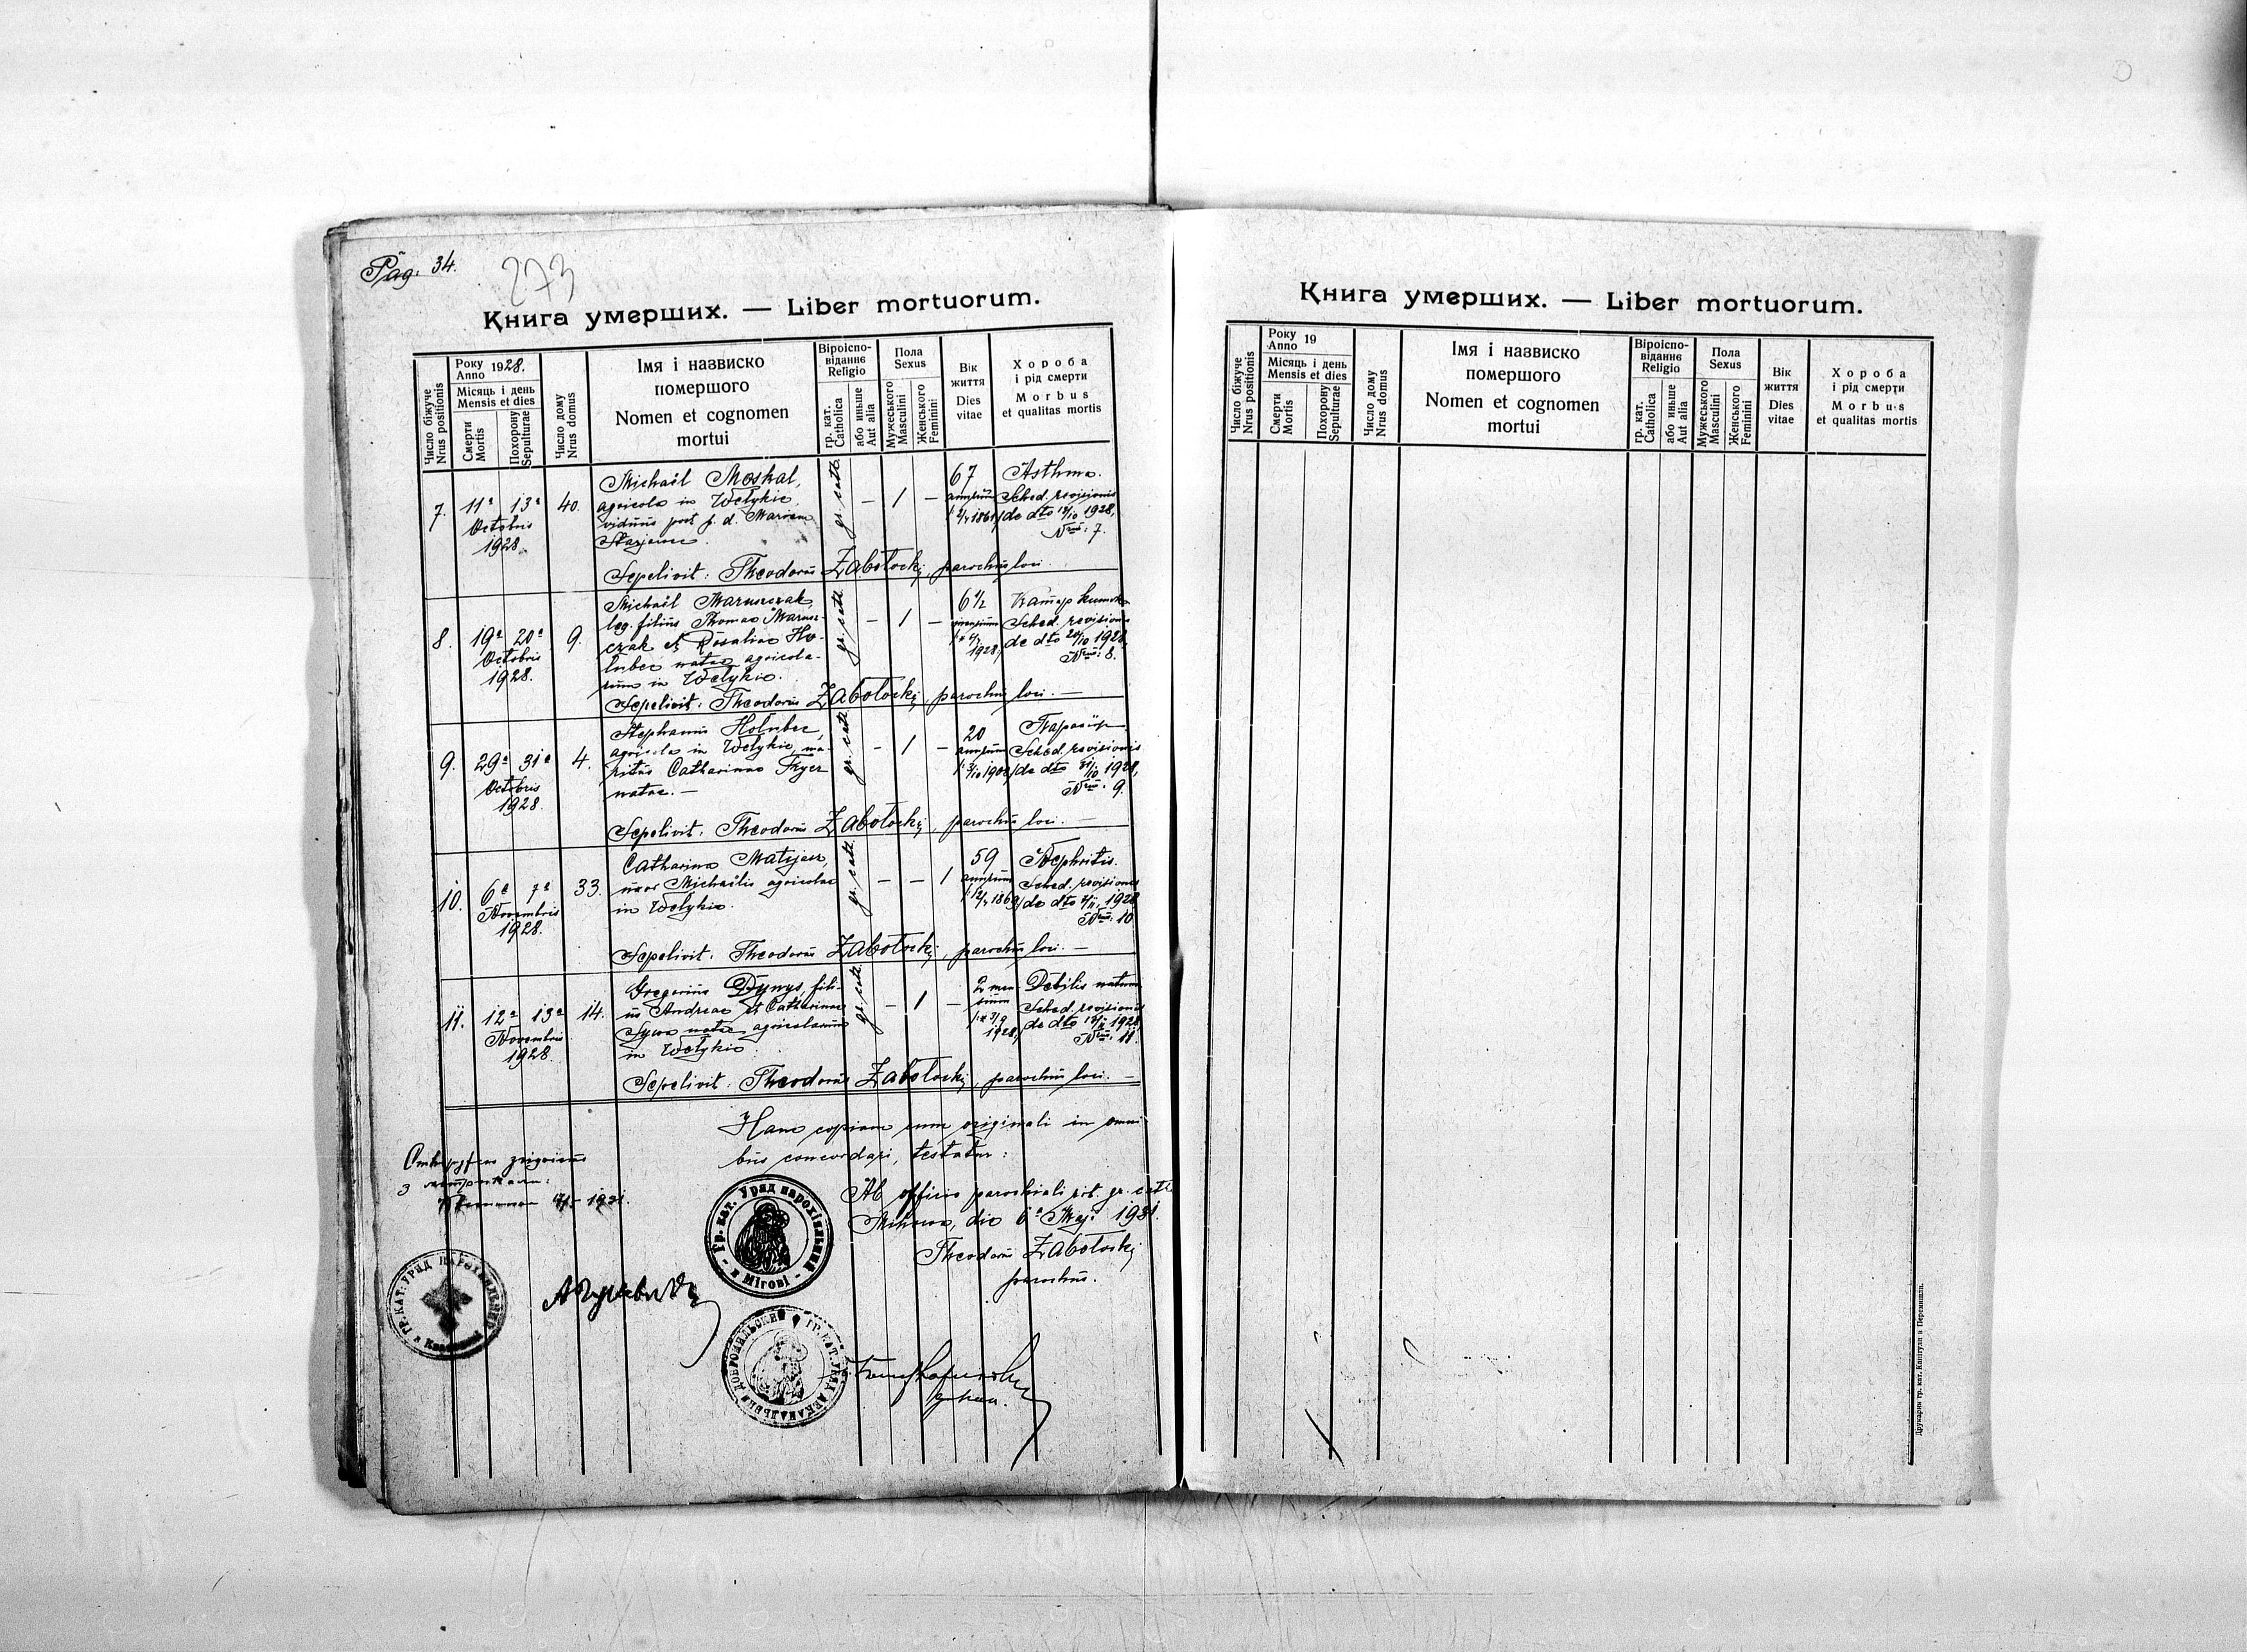 Pag. 34.
273
Книга умерших. — Liber mortuorum.
Число біжуче
Nrus positionis
Року
Anno 1928.
Місяць і день
Mensis et dies
Смерти
Mortis
Похорону
Sepulturae
Число дому
Nrus domus
Імя і назвиско
помершого
Nomen et cognomen
mortui
Віроіспо-
віданнє
Religio
гр. кат.
Catholica
або иньше
Aut alia
Пола
Sexus
Мужеського
Masculini
Женського
Feminini
Вік
життя
Dies
vitae
Хороба
і рід смерти
Morbus
et qualitas mortis
7. 11a 13a
Octobris
1928.
40.
Michaël Moskal,
agricola in Wełykie,
viduus post p. d. Mariam
gr. cath.
— 1 —
67
annorum
Asthma.
Sched. revisionis
de dto 12/10 1928,
Nrus: 7.
Sepelivit: Theodorus Zabołockij, parochus loci.
8. 19a 20a
Octobris
1928.
9.
Michaël Maruszczak,
leg. filius Thomae Marusz-
czak et Rosaliae Ho-
łubec natae agricola-
rum in Wełykie.
gr. cath.
— 1 —
6 1/2
mensium
1928
Sched. revisionis
de dto 20/10 1928,
Nrus: 8.
Sepelivit: Theodorus Zabołockij, parochus loci. —
9. 29a 31a
Octobris
1928.
4.
Stephanus Hołubec,
agricola in Wełykie, ma-
ritus Catharinae Kycz
natae. —
gr. cath.
— 1 —
20
annorum
Sched. revisionis
de dto 31/10 1928,
Nrus: 9.
Sepelivit: Theodorus Zabołockij, parochus loci. —
10. 6a 7a
Novembris
1928.
33.
Catharina Matyjasz,
uxor Michaëlis agricolae
in Wełykie.
gr. cath.
— — 1
59
annorum
Nephritis.
Sched. revisionis
1928
Nrus: 10
Sepelivit: Theodorus Zabołockij, parochus loci. —
11. 12a 13a
Novembris
1928.
14.
Gregorius Dynys, fili-
us Andreae et Catharinae
natae agricolarum
in Wełykie.
gr. cath.
— 1 —
2 men-
sium
* 3/9
1928
Debilis natura
Sched. revisionis
1928,
Nrus: 11.
Sepelivit: Theodorus Zabołockij, parochus loci. —
Hanc copiam cum originali in omni-
bus concordari, testatur:
Ab officio parochiali rit. gr. cath.
Mihova, die 6a Maji 1931.
Theodorus Zabołockij
parochus.
з метриками:
1931.
Гр. кат. Уряд парохіяльний
в Мігові
ГР. КАТ. УРЯД ПАРОХІЯЛЬНИЙ
ГР. КАТ. УРЯД ДЕКАНАЛЬНИЙ ДОБРОМИЛЬСКИЙ
декан.
Книга умерших. — Liber mortuorum.
Число біжуче
Nrus positionis
Року
Anno 19
Місяць і день
Mensis et dies
Смерти
Mortis
Похорону
Sepulturae
Число дому
Nrus domus
Імя і назвиско
помершого
Nomen et cognomen
mortui
Віроіспо-
віданнє
Religio
гр. кат.
Catholica
або иньше
Aut alia
Пола
Sexus
Мужеського
Masculini
Женського
Feminini
Вік
життя
Dies
vitae
Хороба
і рід смерти
Morbus
et qualitas mortis
Друкарня гр. кат. Капітули в Перемишли.